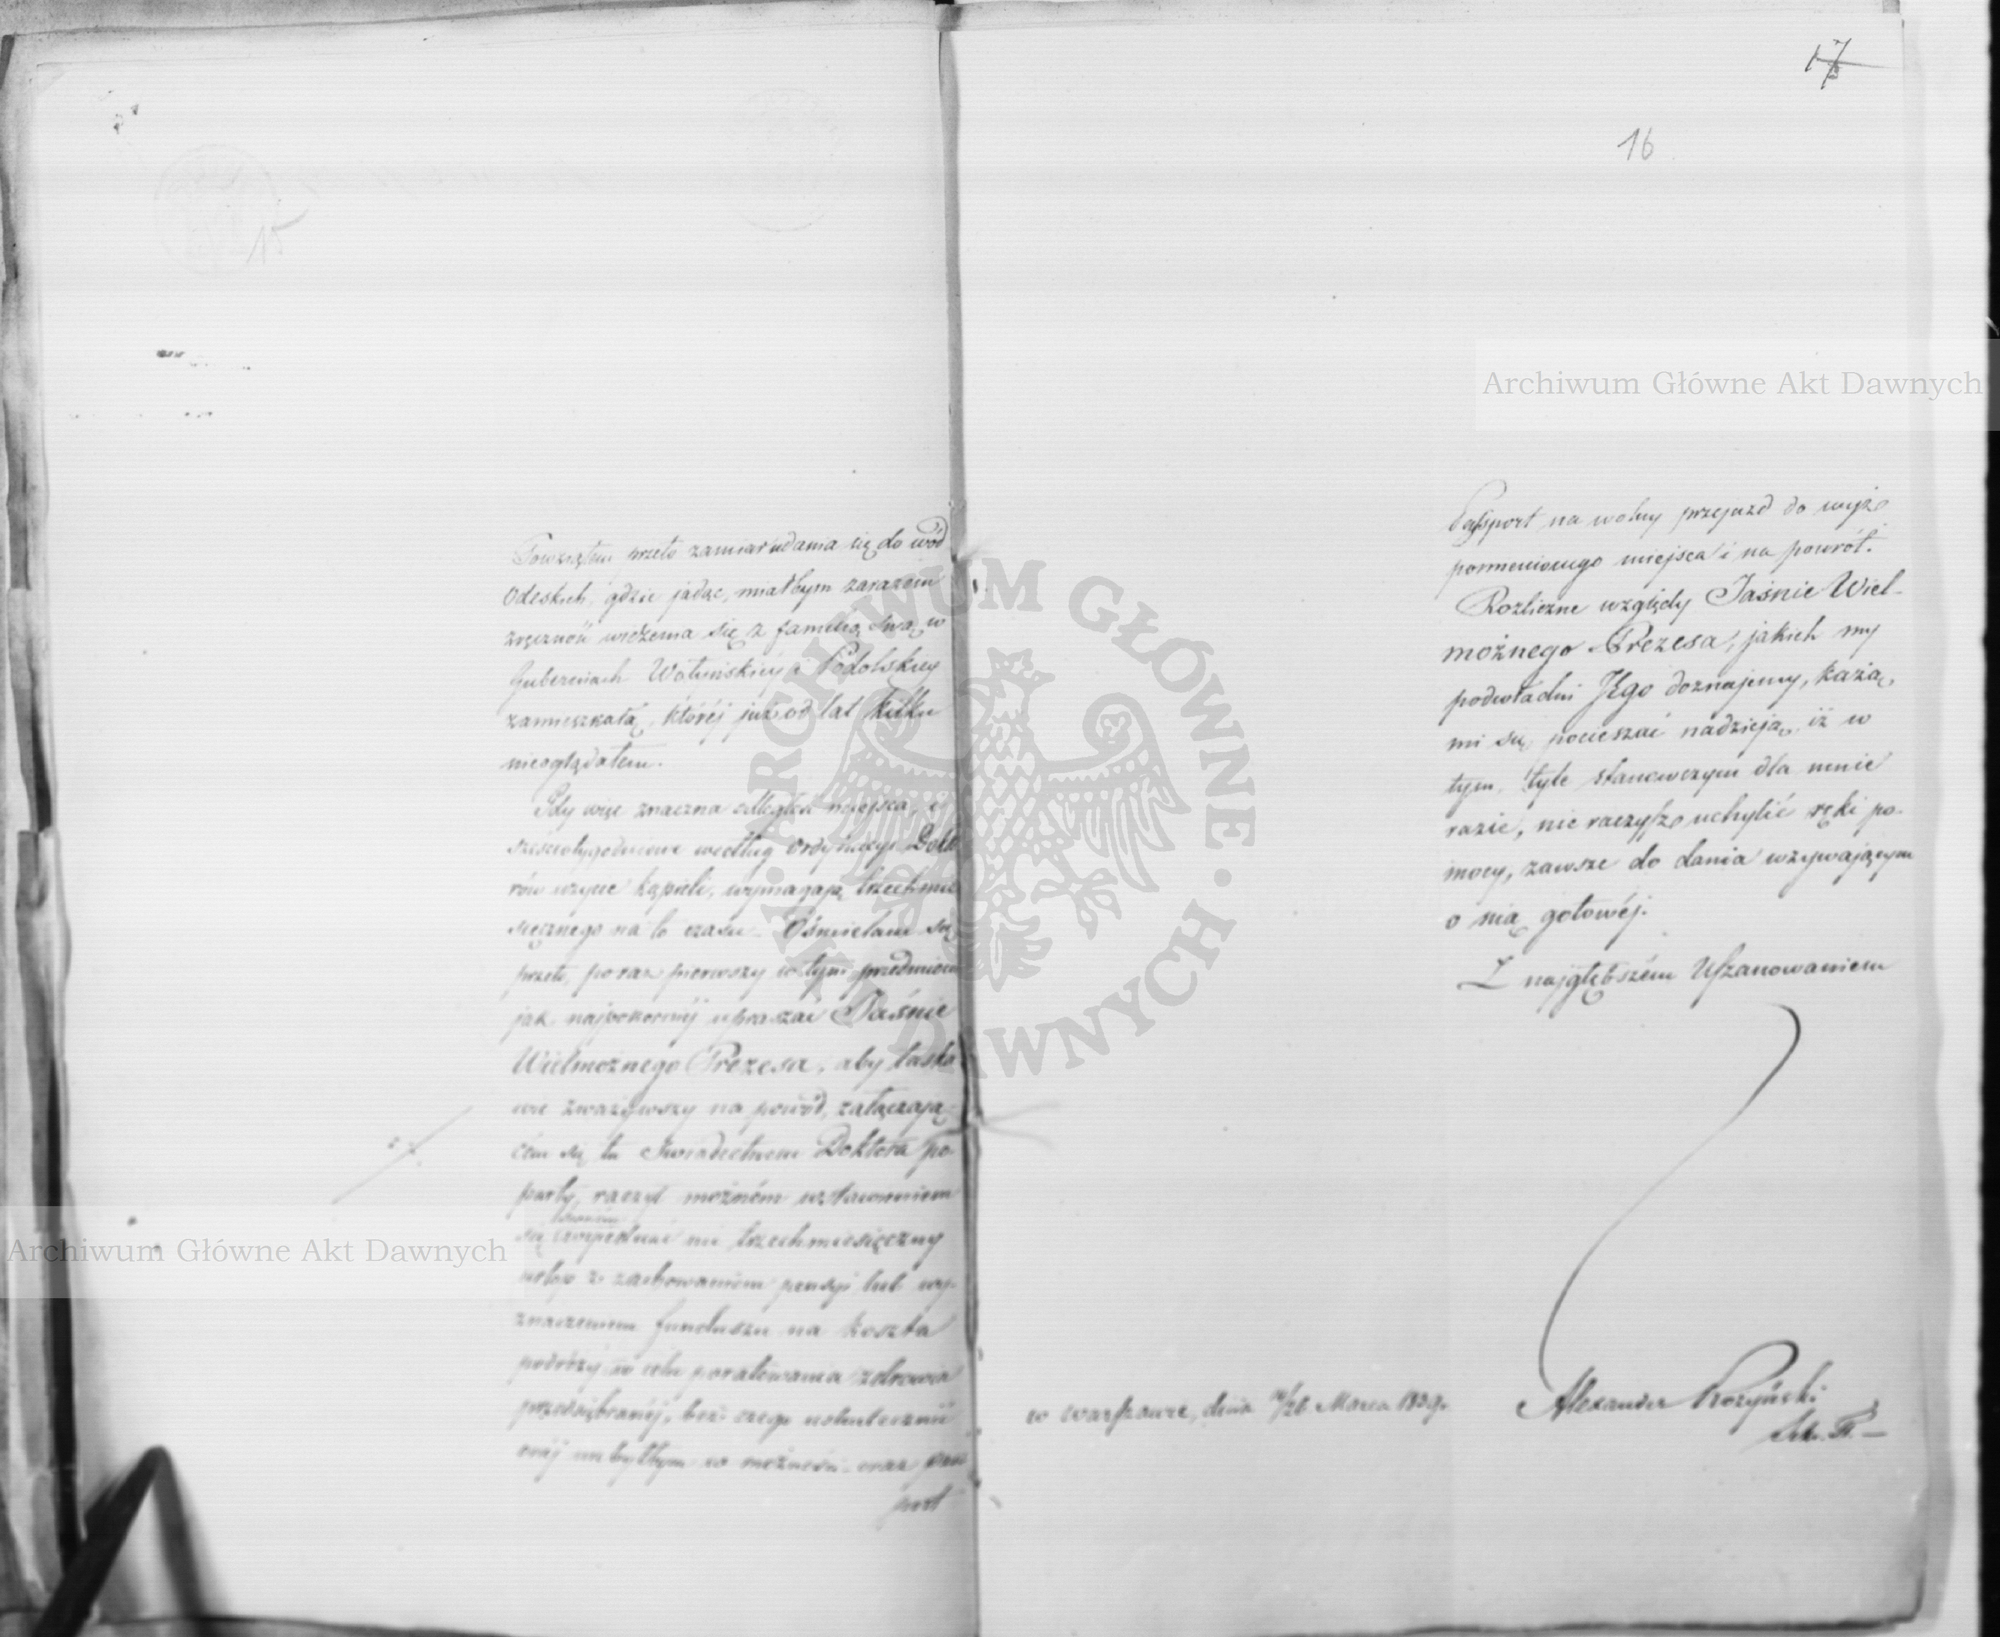 17
16
15
Powziąłem przeto zamiar udania się do wód
Odeskich, gdzie jadąc, miałbym zarazem
zręczność widzenia się z familią swą w
Guberniach Wołyńskiéj i Podolskiey
zamieszkałą, któréj już od lat kilku
nieoglądałem.
Gdy więc znaczna odległość miejsca, i
sześciotygodniowe według ordynacyi Dokto
rów użycie kąpieli, wymagają trzechmie
sięcznego na to czasu. Ośmielam się
przeto, po raz pierwszy w tym przedmiocie
jak najpokorniéj upraszać Jaśnie
Wielmożnego Prezesa, aby łaska
wie zważywszy na powód, załączają-
cém się tu Świadectwem Doktora po-
party, raczył możném wstawieniem
się mi trzechmiesięczny
urlop z zachowaniem pensyi lub wy-
znaczeniem funduszu na koszta
podróży w celu poratowania zdrowia
przedsiębranéj, bez czego uskutecznić
onéj nie byłbym w możności oraz pasz
port
Passport na wolny przejazd do wyżé
pomienionego miejsca i na powrót.
Rozliczne względy Jaśnie Wiel-
możnego Prezesa, jakich my
podwładni Jego doznajemy, każą
mi się pocieszać nadzieją, iż w
tym, tyle stanowczym dla mnie
razie, nie raczysz uchylić ręki po-
mocy, zawsze do dania wzywającym
o nią gotowéj.
Z najgłębszém Uszanowaniem
w Warszawie, dnia /26 Marca 1839.
Alexander
Archiwum Główne Akt Dawnych
Archiwum Główne Akt Dawnych
ARCHIWUM GŁÓWNE AKT DAWNYCH